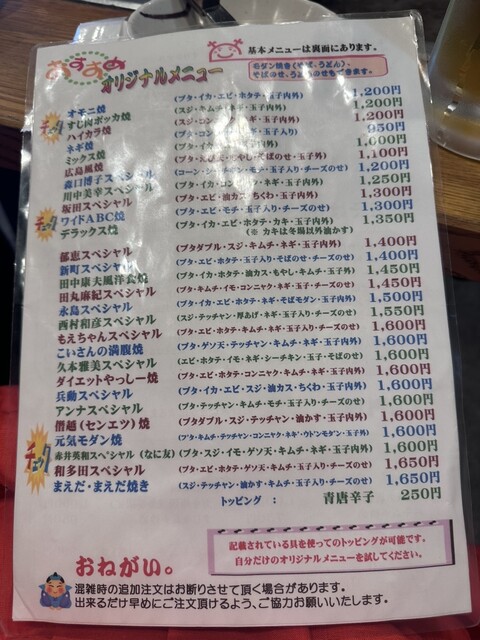 おすすめ
オリジナルメニュー
基本メニューは裏面にあります。
モダン焼き(そば、うどん)、
そばのせ、うどんのせもできます。
チェック
オモニ焼 (ブタ・イカ・エビ・ホタテ・玉子内外) 1,200円
すじ肉ポッカ焼 (スジ・キムチ・ネギ・玉子内外) 1,200円
ハイカラ焼 (スジ・コン ギ・玉子内外) 1,200円
ネギ焼 (ブタ・コン ギ・玉子入り) 950円
ミックス焼 (ブタ・イカ 玉子内外) 1,000円
広島風焼 (ブタ・ もやし・そばのせ・玉子外) 1,100円
森口博子スペシャル (コーン・シーチキン・モチ・玉子入り・チーズのせ) 1,200円
川中美幸スペシャル (ブタ・イカ・コンニャク・ホタテ・玉子内外) 1,250円
坂田スペシャル (ブタ・エビ・油カス・ちくわ・玉子内外) 1,300円
チェック
ワイドABC焼 (ブタ・エビ・モチ・玉子入り・チーズのせ) 1,300円
デラックス焼 (ブタ・イカ・エビ・ホタテ・カキ・玉子内外) 1,350円
(※ カキは冬場以外油かす)
郁恵スペシャル (ブタダブル・スジ・キムチ・ネギ・玉子内外) 1,400円
新町スペシャル (ブタ・エビ・ホタテ・玉子入り・そばのせ・チーズのせ) 1,400円
田中康夫風洋食焼 (ブタ・イカ・ホタテ・油カス・もやし・キムチ・玉子外) 1,450円
田丸麻紀スペシャル (ブタ・キムチ・イモ・コンニャク・ネギ・玉子内外) 1,450円
永島スペシャル (ブタ・イカ・エビ・ホタテ・ネギ・そばモダン・玉子内外) 1,500円
西村和彦スペシャル (スジ・テッチャン・厚あげ・ネギ・玉子内外) 1,550円
もえちゃんスペシャル (ブタ・エビ・ホタテ・キムチ・ネギ・玉子内外) 1,600円
こいさんの満腹焼 (ブタ・ゲソ天・テッチャン・キムチ・ネギ・玉子内外) 1,600円
久本雅美スペシャル (エビ・ホタテ・イモ・ネギ・シーチキン・玉子・そばのせ) 1,600円
ダイエットやっしー焼 (ブタ・エビ・ホタテ・コンニャク・キムチ・ネギ・玉子内外) 1,600円
兵動スペシャル (ブタ・イカ・エビ・スジ・油カス・ちくわ・玉子内外) 1,600円
アンナスペシャル (ブタ・テッチャン・キムチ・ネギ・玉子入り・チーズのせ) 1,600円
僭越(センエツ)焼 (ブタダブル・スジ・テッチャン・油かす・玉子内外) 1,600円
元気モダン焼 (ブタ・キムチ・テッチャン・コンニャク・ネギ・ウドンモダン・玉子外) 1,600円
チェック
赤井英和スペシャル(なに友) (ブタ・スジ・イモ・ゲソ天・キムチ・ネギ・玉子内外) 1,600円
和多田スペシャル (ブタ・エビ・ホタテ・ゲソ天・キムチ・玉子入り・チーズのせ) 1,650円
まえだ・まえだ焼き (スジ・テッチャン・油かす・キムチ・玉子入り・チーズのせ) 1,650円
トッピング : 青唐辛子 250円
記載されている具を使ってのトッピングが可能です。
自分だけのオリジナルメニューを試してください。
おねがい。
混雑時の追加注文はお断りさせて頂く場合があります。
出来るだけ早めにご注文頂けるよう、ご協力お願いいたします。